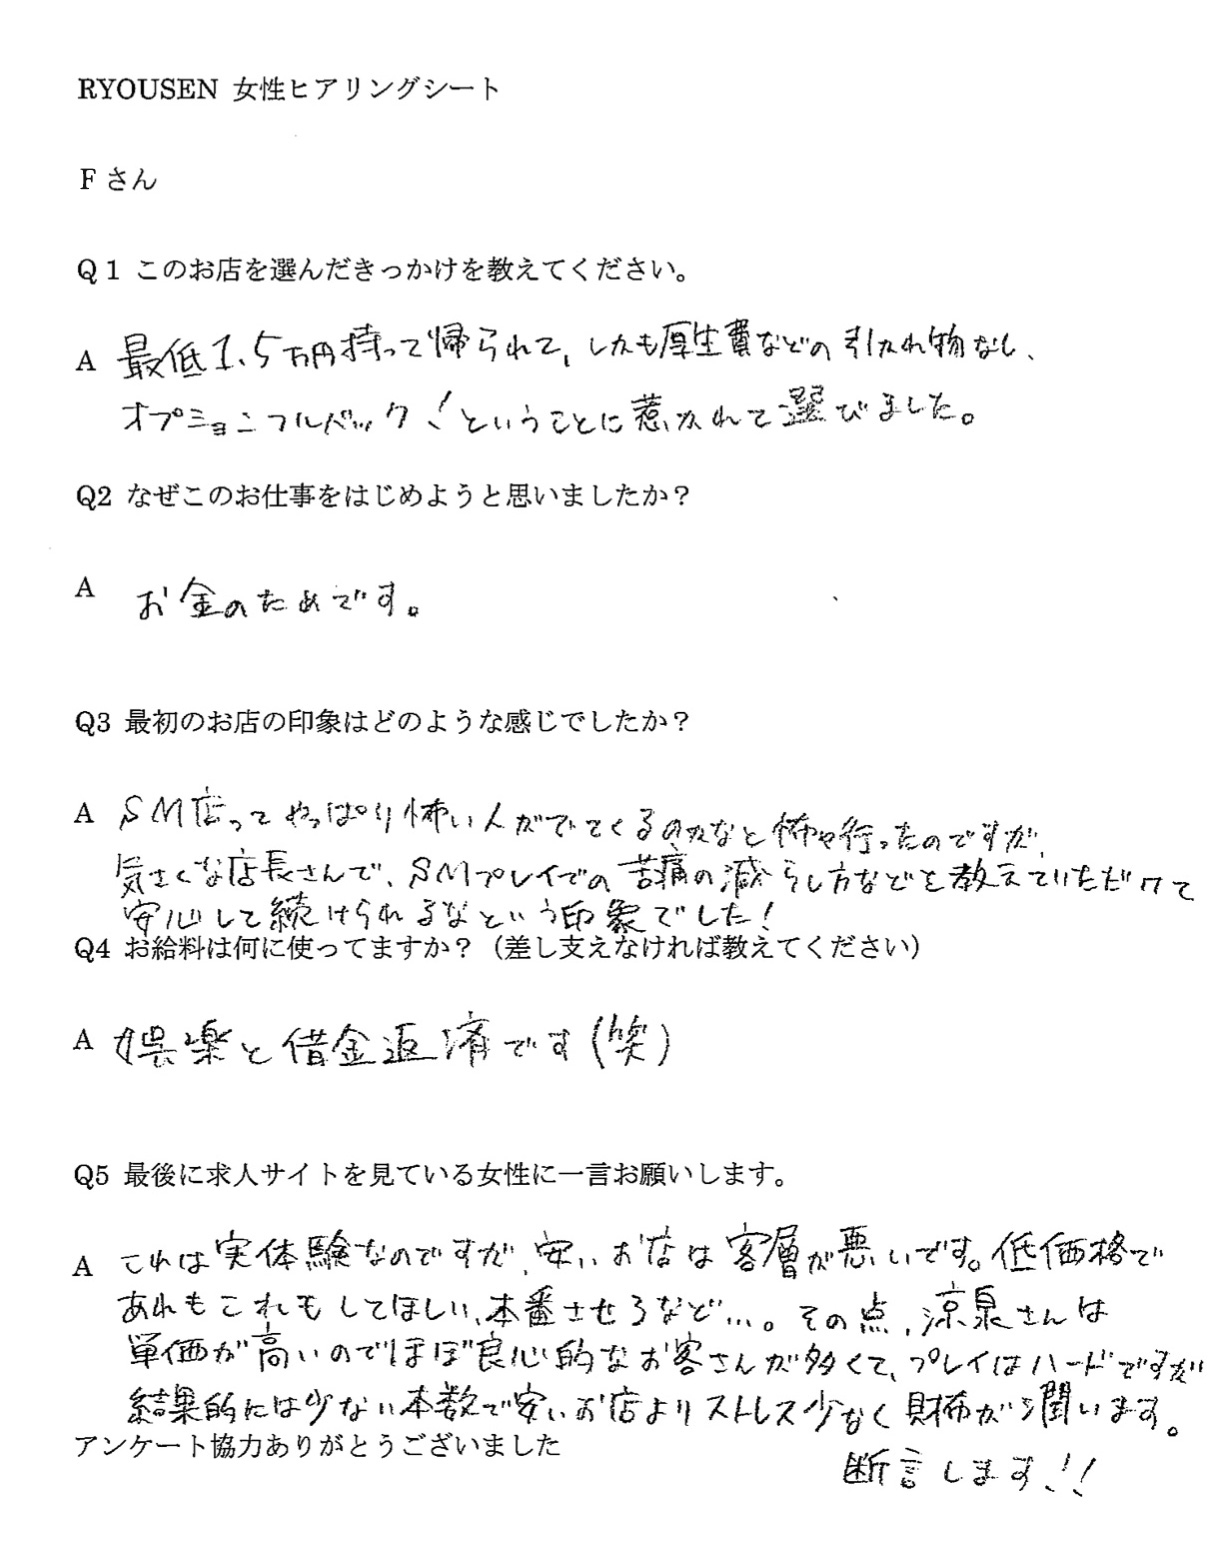 RYOUSEN 女性ヒアリングシート
Fさん
Q1 このお店を選んだきっかけを教えてください。
A 最低1.5万円持って帰られて、しかも厚生費などの引かれ物なし、
オプションフルバック!ということに惹かれて選びました。
Q2 なぜこのお仕事をはじめようと思いましたか?
A お金のためです。
Q3 最初のお店の印象はどのような感じでしたか?
A SM店ってやっぱり怖い人がでてくるのかなと怖々行ったのですが、
気さくな店長さんで、SMプレイでの苦痛の減らし方などを教えていただけて
安心して続けられるなという印象でした!
Q4 お給料は何に使ってますか?(差し支えなければ教えてください)
A 娯楽と借金返済です(笑)
Q5 最後に求人サイトを見ている女性に一言お願いします。
A これは実体験なのですが、安いお店は客層が悪いです。低価格で
あれもこれもしてほしい、本番させろなど…。その点、涼泉さんは
単価が高いのでほぼ良心的なお客さんが多くて、プレイはハードですが
結果的には少ない本数で安いお店よりストレス少なく財布が潤います。
アンケート協力ありがとうございました
断言します!!